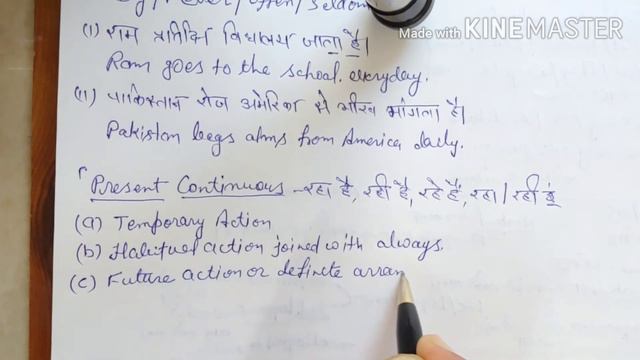 ever/often/seldom
(i) राम प्रतिदिन विद्यालय जाता है।
Ram goes to the school everyday.
(ii) पाकिस्तान रोज अमेरिका से भीख मांगता है।
Pakistan begs alms from America daily.
Present Continuous - रहा है, रही है, रहे हैं, रहा/रही हूं
(a) Temporary Action
(b) Habitual action joined with always.
(c) Future action or definite arran
Made with KINEMASTER